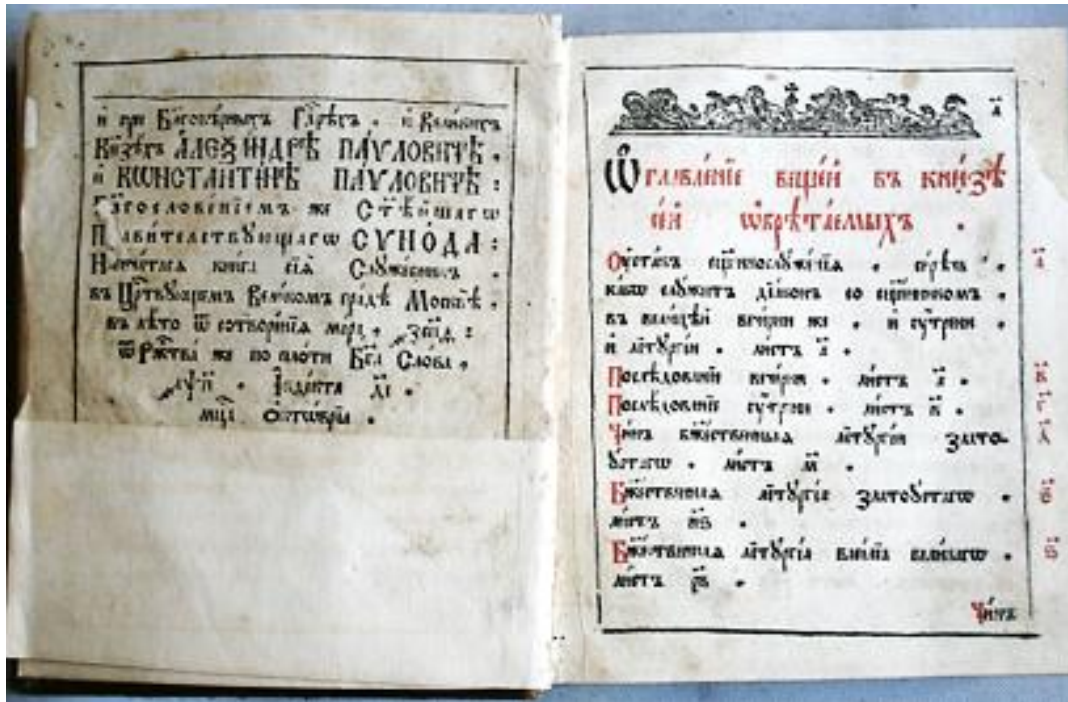 и при Бл҃говѣрныхъ Гдⷭ҇рѣхъ . и Великихъ
Кнѧзѣхъ АЛЕѮАНДРѢ ПАѴЛОВИЧѢ .
и КѠНСТАНТИНѢ ПАѴЛОВИЧѢ :
Бл҃гословенїемъ же Ст҃ѣйшагѡ
Правителствꙋющагѡ СѴНО́ДА :
Напечатасѧ книга сїѧ̀ Слꙋжебникъ .
въ Црⷭ҇твꙋющемъ Великомъ гра́дѣ Москвѣ̀ .
въ лѣто ѿ сотворенїѧ мїра ,
ѿ Ржⷭ҇тва̀ же по плоти Бг҃а Сло́ва ,
І҆ндїкта
мцⷭ҇а Ѻ҆ктѡврїа .
а҃
Ѡ҆главле́нїе веще́й въ кни́зѣ
се́й ѡ҆брѣта́емыхъ .
Оу҆ста́въ сщ҃еннослꙋже́нїѧ . си́рѣчь .
ка́кѡ слꙋ́житъ дїа́конъ со сщ҃е́нникомъ .
въ вели́цѣй вече́рни же . и оу҆́трени .
и лїтꙋргі́и . ли́стъ а҃ .
Послѣ́дованїе вече́рни . ли́стъ
Послѣ́дованїе оу҆́трени . ли́стъ
Чи́нъ бжⷭ҇твенныѧ лїтꙋргі́и злато-
ꙋ́стагѡ . ли́стъ м҃ .
Бжⷭ҇твеннаѧ лїтꙋргі́а златоꙋ́стагѡ .
ли́стъ
Бжⷭ҇твеннаѧ лїтꙋргі́а васі́лїа вели́кагѡ .
ли́стъ
Чи́нъ